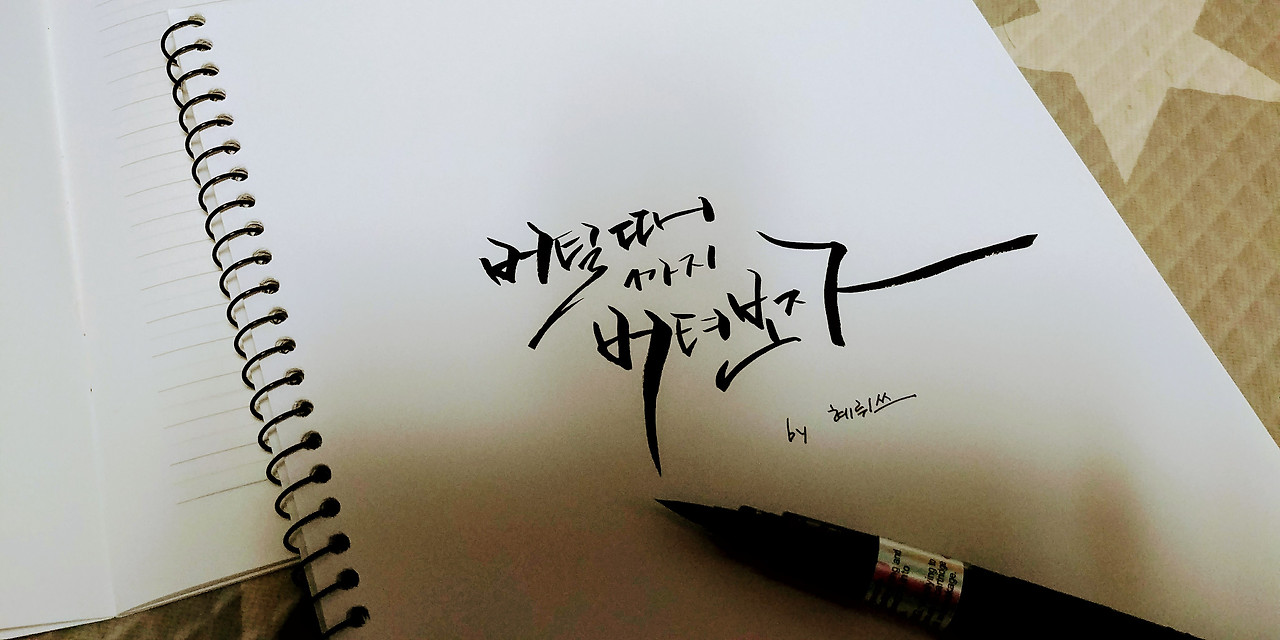 버틸때
까지
버텨보자
by 혜뤼쓰